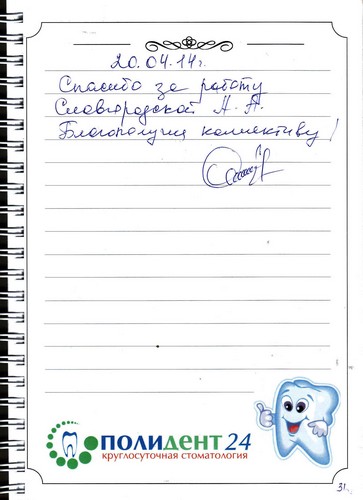 20.04.14г.
Спасибо за работу
Славгородской А.А.
Благополучия коллективу!
ПОЛИДЕНТ 24
круглосуточная стоматология
31